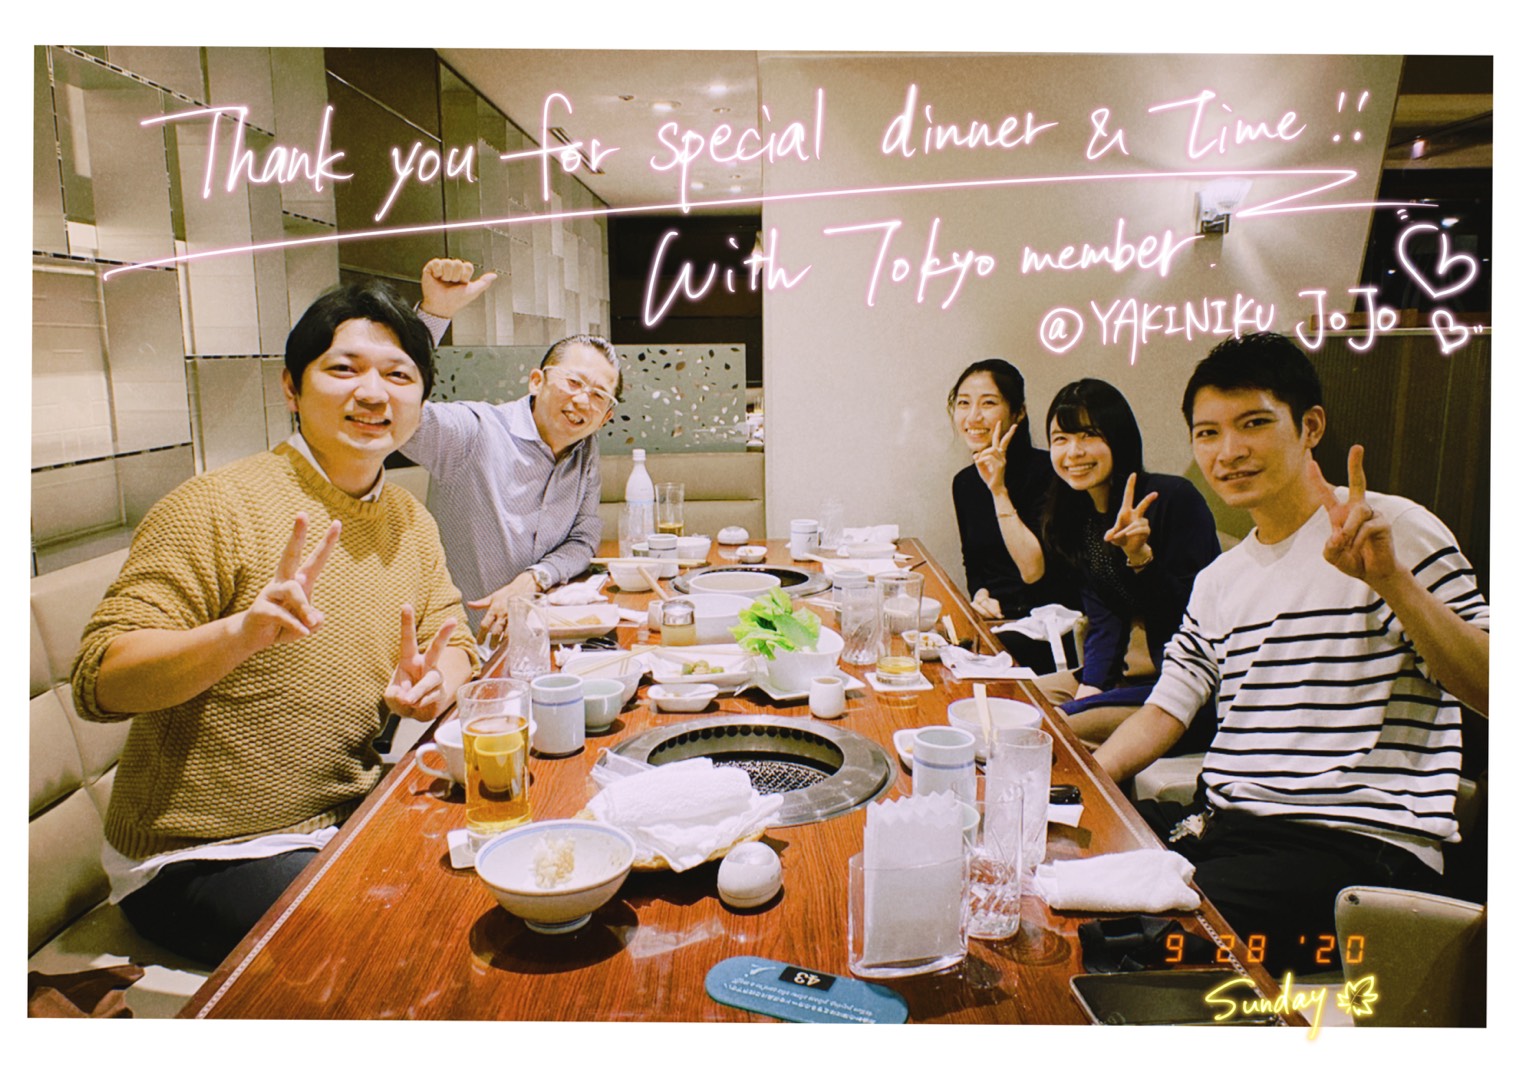 Thank you for special dinner & Time!!
With Tokyo member.
@YAKINIKU JoJo
43
9 28 '20
Sunday